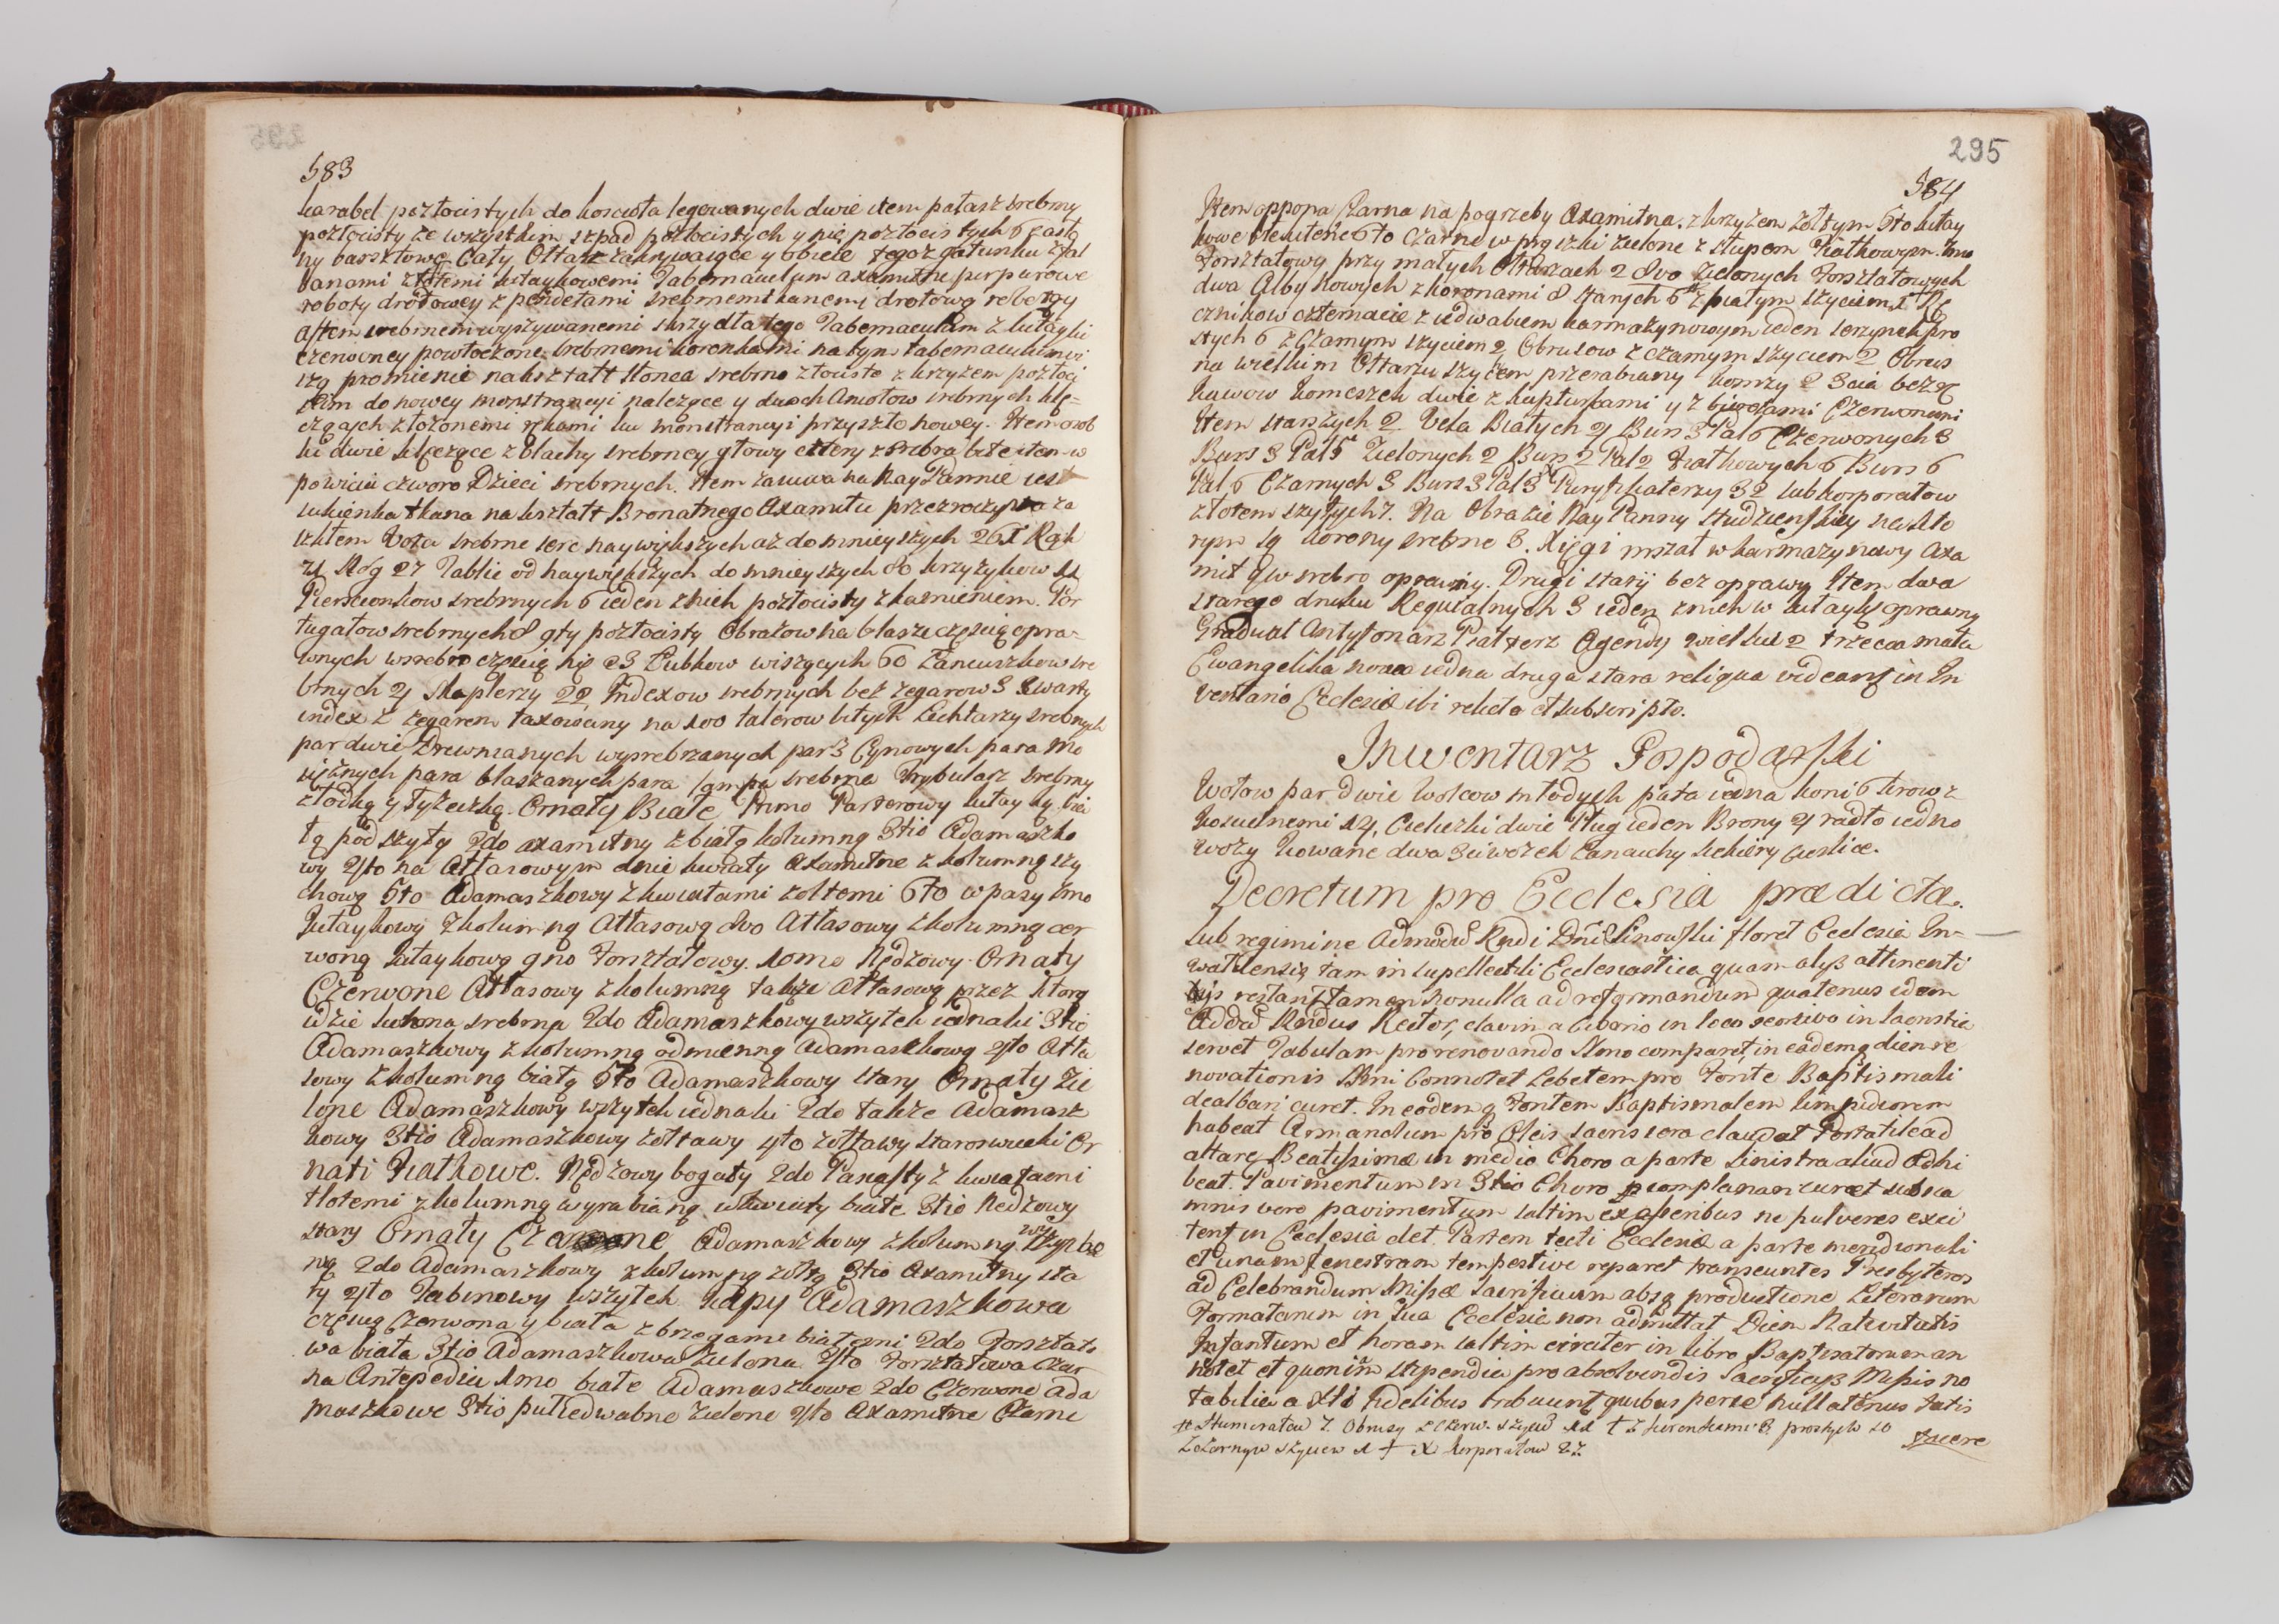 583
karabel pozłocistych do koscioła legowanych dwie item pałasz srebrny
pozłocisty ze wszystkim szpad pozłocistych y nie pozłocistych 6 Zasło
ny barsztowe Cały Ołtarz zakrywaiące y obicie tegoz gatunku z fal
banami złotemi kitaykowemi Tabernaculum axamitne purpurowe
roboty drotowey z pendetami srebrnemi tkanemi drotową robotą y
aftem srebrnem wyszywanemi skrzydła tego Tabernaculum z kitayki
czerwoney powłoczone srebrnemi koronkami na tym tabernaculum wi
szą promienie nakształt słonca srebrno złociste z krzyzem pozłoci
stym do nowey monstrancyi nalezące y dwoch Aniołow srebrnych klę=
czących złozonemi rękami ku monstrancyi przyszło nowey. Item osob
ki dwie klęczące z blachy srebrney głowy cztery z srebra bite item w
powiciu czworo Dzieci srebrnych. Item zasuwa na Nay Pannie iest
sukienka tkana na kształt Bronatnego Axamitu przezroczysta za
szkłem Vota srebrne serc naywiększych az do mnieyszych 261 Rąk
21 Nóg 27 Tablic od naywiększych do mnieyszych 80 krzyzykow 11
Pierscionkow srebrnych 6 ieden z nich pozłocisty z kamieniem. Por
tugałow srebrnych 8 9ty pozłocisty Obrazow na blasze częscią opra=
wnych w srebro częscią nie 23 Łubkow wiszących 60 Łancuszkow sre
brnych 4 Szkaplerzy 22 Indexow srebrnych bez zegarow 3 czwarty
index z zegarem taxowany na 100 talerow bitych Lichtarzy srebrnych
par dwie Drewnianych wysrebrzanych par 3 Cynowych para Mo
siężnych para blaszanych para lampa srebrna Trybularz srebrny
z łodką y łyzeczką. Ornaty Białe Primo Parterowy kitayką bia
łą pod szyty 2do axamitny z białą kolumną 3tio Adamaszko
wy 4to na Attasowym dnie kwiaty Axamitne z kolumną szy
chową 5to Adamaszkowy z kwiatami zołtemi 6to w pasy 7mo
Kitaykowy z kolumną Attasową 8vo Attasowy z kolumną czer
woną kitaykową 9no Forsztatowy. 10mo Nędzowy. Ornaty
Czerwone Attasowy z kolumną takze Attasową przez ktorą
idzie korona srebrna 2do Adamaszkowy wszytek iednaki 3tio
Adamaszkowy z kolumną odmienną Adamaszkową 4to Atta
sowy z kolumną białą 5to Adamaszkowy stary Ornaty Zie
lone Adamaszkowy wszytek iednaki 2do takze Adamasz
kowy 3tio Adamaszkowy zołtawy 4to zołtawy staroswiecki Or
nati Fiatkowe. Nędzowy bogaty 2do Parasty z kwiatami
tłotemi z kolumną wyrabianą w kwiaty białe 3tio Nedzowy
stary Ornaty Czarne Adamaszkowy z kolumną
ną 2do Adamaszkowy z kolumną zołtą 3tio Axamitny sta
ry 4to Tabinowy wszytek Kapy Adamaszkowa
częscią Czerwona y biała z brzegami białemi 2do Forsztato
wa biała 3tio Adamaszkowa zielona 4to Forsztatowa Czar
na Antepedia 1mo białe Adamaszkowe 2do Czerwone Ada
maszkowe 3tio puł iedwabne zielone 4to Axamitne Czarne
295
584
Item oppona Czarna na pogrzeby Axamitna z krzyzem zołtym 5to kitay
kowe 6to Czarne w prązki zielone z słupem Fiatkowym. 7mo
Forsztatową przy małych Ołtarzach 2 8vo zielonych Forsztatowych
dwa Alby Nowych z koronami 8 starych 6 z białym szyciem 1 Rę
cznikow czternacie z iedwabiem karmazynowym ieden szrzynek pro
stych 6 z Czarnym szyciem 2 Obrusow z czarnym szyciem 2 Obrus
na wielkim Ołtarzu szyciem przerabiany komzy 2 3cia bez rę
kawow komeszek dwie z kapturkami y z birotami Czerwonemi
Item starszych 2 Vela Białych 4 Burs 3 Pal 6 Czerwonych 3
Burs 3 Pal 5 Zielonych 2 Burs 2 Pal 2 Fiatkowych 6 Burs 6
Pal 6 Czarnych 3 Burs 3 Pal 3 Puryfikaterzy 32 lub korporałow
złotem szytych 7. Na Obrazie Nay Panny Studzienskiey na kto
rym są korony srebrne 3. Xięgi mszał w karmazynowy Axa
mit y w srebro oprawny. Drugi stary bez oprawy Item dwa
starego druku Requialnych 3 ieden z nich w kitaykę oprawny
Graduał Antyfonarz Psałterz Agendy wielkie 2 trzecia mała
Ewangelika nowa iedna druga stara reliqua videant in In
ventario Ecclesiæ ibi relicto et subscripto.
Inwentarz Gospodarski
Wołow par dwie Wolcow młodych para iedna koni 6 krow z
kosuchnemi 14, Cieluszki dwie Pług ieden Brony 4 radło iedno
wozy kowane dwa 3ci wozek Łancuchy siekiery cieslice.
Decretum pro Ecclesia prædicta.
Sub regimine Admodu Rndi Dni Linowski floret Ecclesia In=
waldensis tam in supellectili Ecclesiastica quam alys attinenti
ijs restant tamen nonulla ad reformandum quatenus idem
Addu Rndus Rector, clavim a Ciborio in loco secretivo in sacristia
servet Tabulam pro renovando Smo comparet, in eademq die re
novationis SSmi connotet Lebetem pro Fonte Baptismali
dealbari curet. In eodem q Fontem Baptismalem limpidiorem
habeat Armariolum pro Oleis sacris sera claudat Portatile ad
altare Beatissimæ in medio Choro a parte sinistra aliud adhi
beat. Pavimentum in 3tio Choro complanari curet sub sca
mnis vero pavimentum saltim ex asseribus ne pulveres exci
tent in Ecclesia det. Partem tecti Ecclesiæ a parte meridionali
et unam fenestram tempestive reparet transeuntes Presbyteros
ad Celebrandum Missæ Sacrificium absq productione Literarum
Formatarum in sua Ecclesia non admittat Diem Nativitatis
Infantum et horam saltim circiter in libro Baptisatorum an
notet et quoniam stipendia pro absolvendis Sacrificys Missis no
tabilia a Xti fidelibus tribuunt quibus per se nullatenus satis
# Humerałow 7. Obrusy z czerw. szyciem 11 + z koronkami 8 prostych 10
Z czarnym szyciem 1 + X korporałow 27 facere